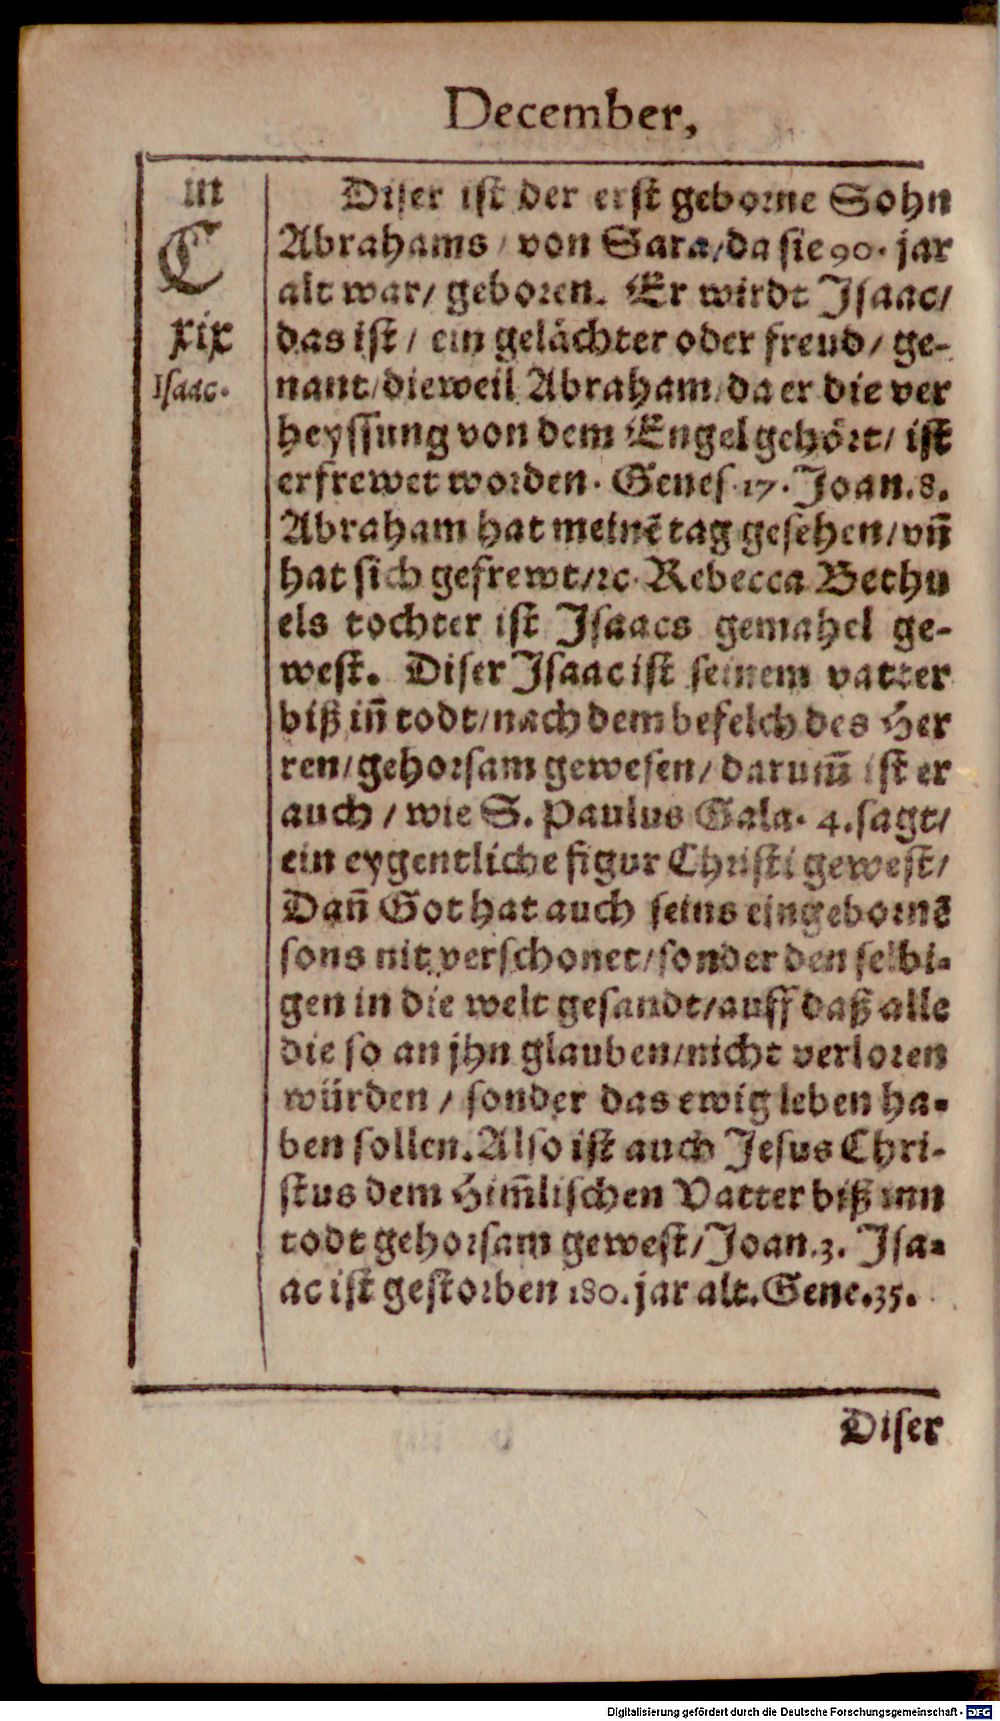 December,
iii
C
xix
Isaac.
Diser ist der erst geborne Sohn
Abrahams / von Sara/da sie 90. jar
alt war/ geboren. Er wirdt Isaac/
das ist / ein gelächter oder freud/ ge-
nant/dieweil Abraham/da er die ver
heyssung von dem Engel gehört/ ist
erfrewet worden. Genes. 17. Joan. 8.
Abraham hat meinē tag gesehen/vn̄
hat sich gefrewt/ꝛc. Rebecca Bethu
els tochter ist Isaacs gemahel ge-
west. Diser Isaac ist seinem vatter
biß in̄ todt/nach dem befelch des Her
ren/gehorsam gewesen/darum̄ ist er
auch / wie S. Paulus Gala. 4. sagt/
ein eygentliche figur Christi gewest/
Dan̄ Got hat auch seins eingebornē
sons nit verschonet/sonder den selbi-
gen in die welt gesandt/auff daß alle
die so an jhn glauben/nicht verloren
würden / sonder das ewig leben ha-
ben sollen. Also ist auch Jesus Chri-
stus dem Him̄lischen Vatter biß inn
todt gehorsam gewest/Joan. 3. Isa-
ac ist gestorben 180. jar alt. Gene. 35.
Diser
Digitalisierung gefördert durch die Deutsche Forschungsgemeinschaft - DFG